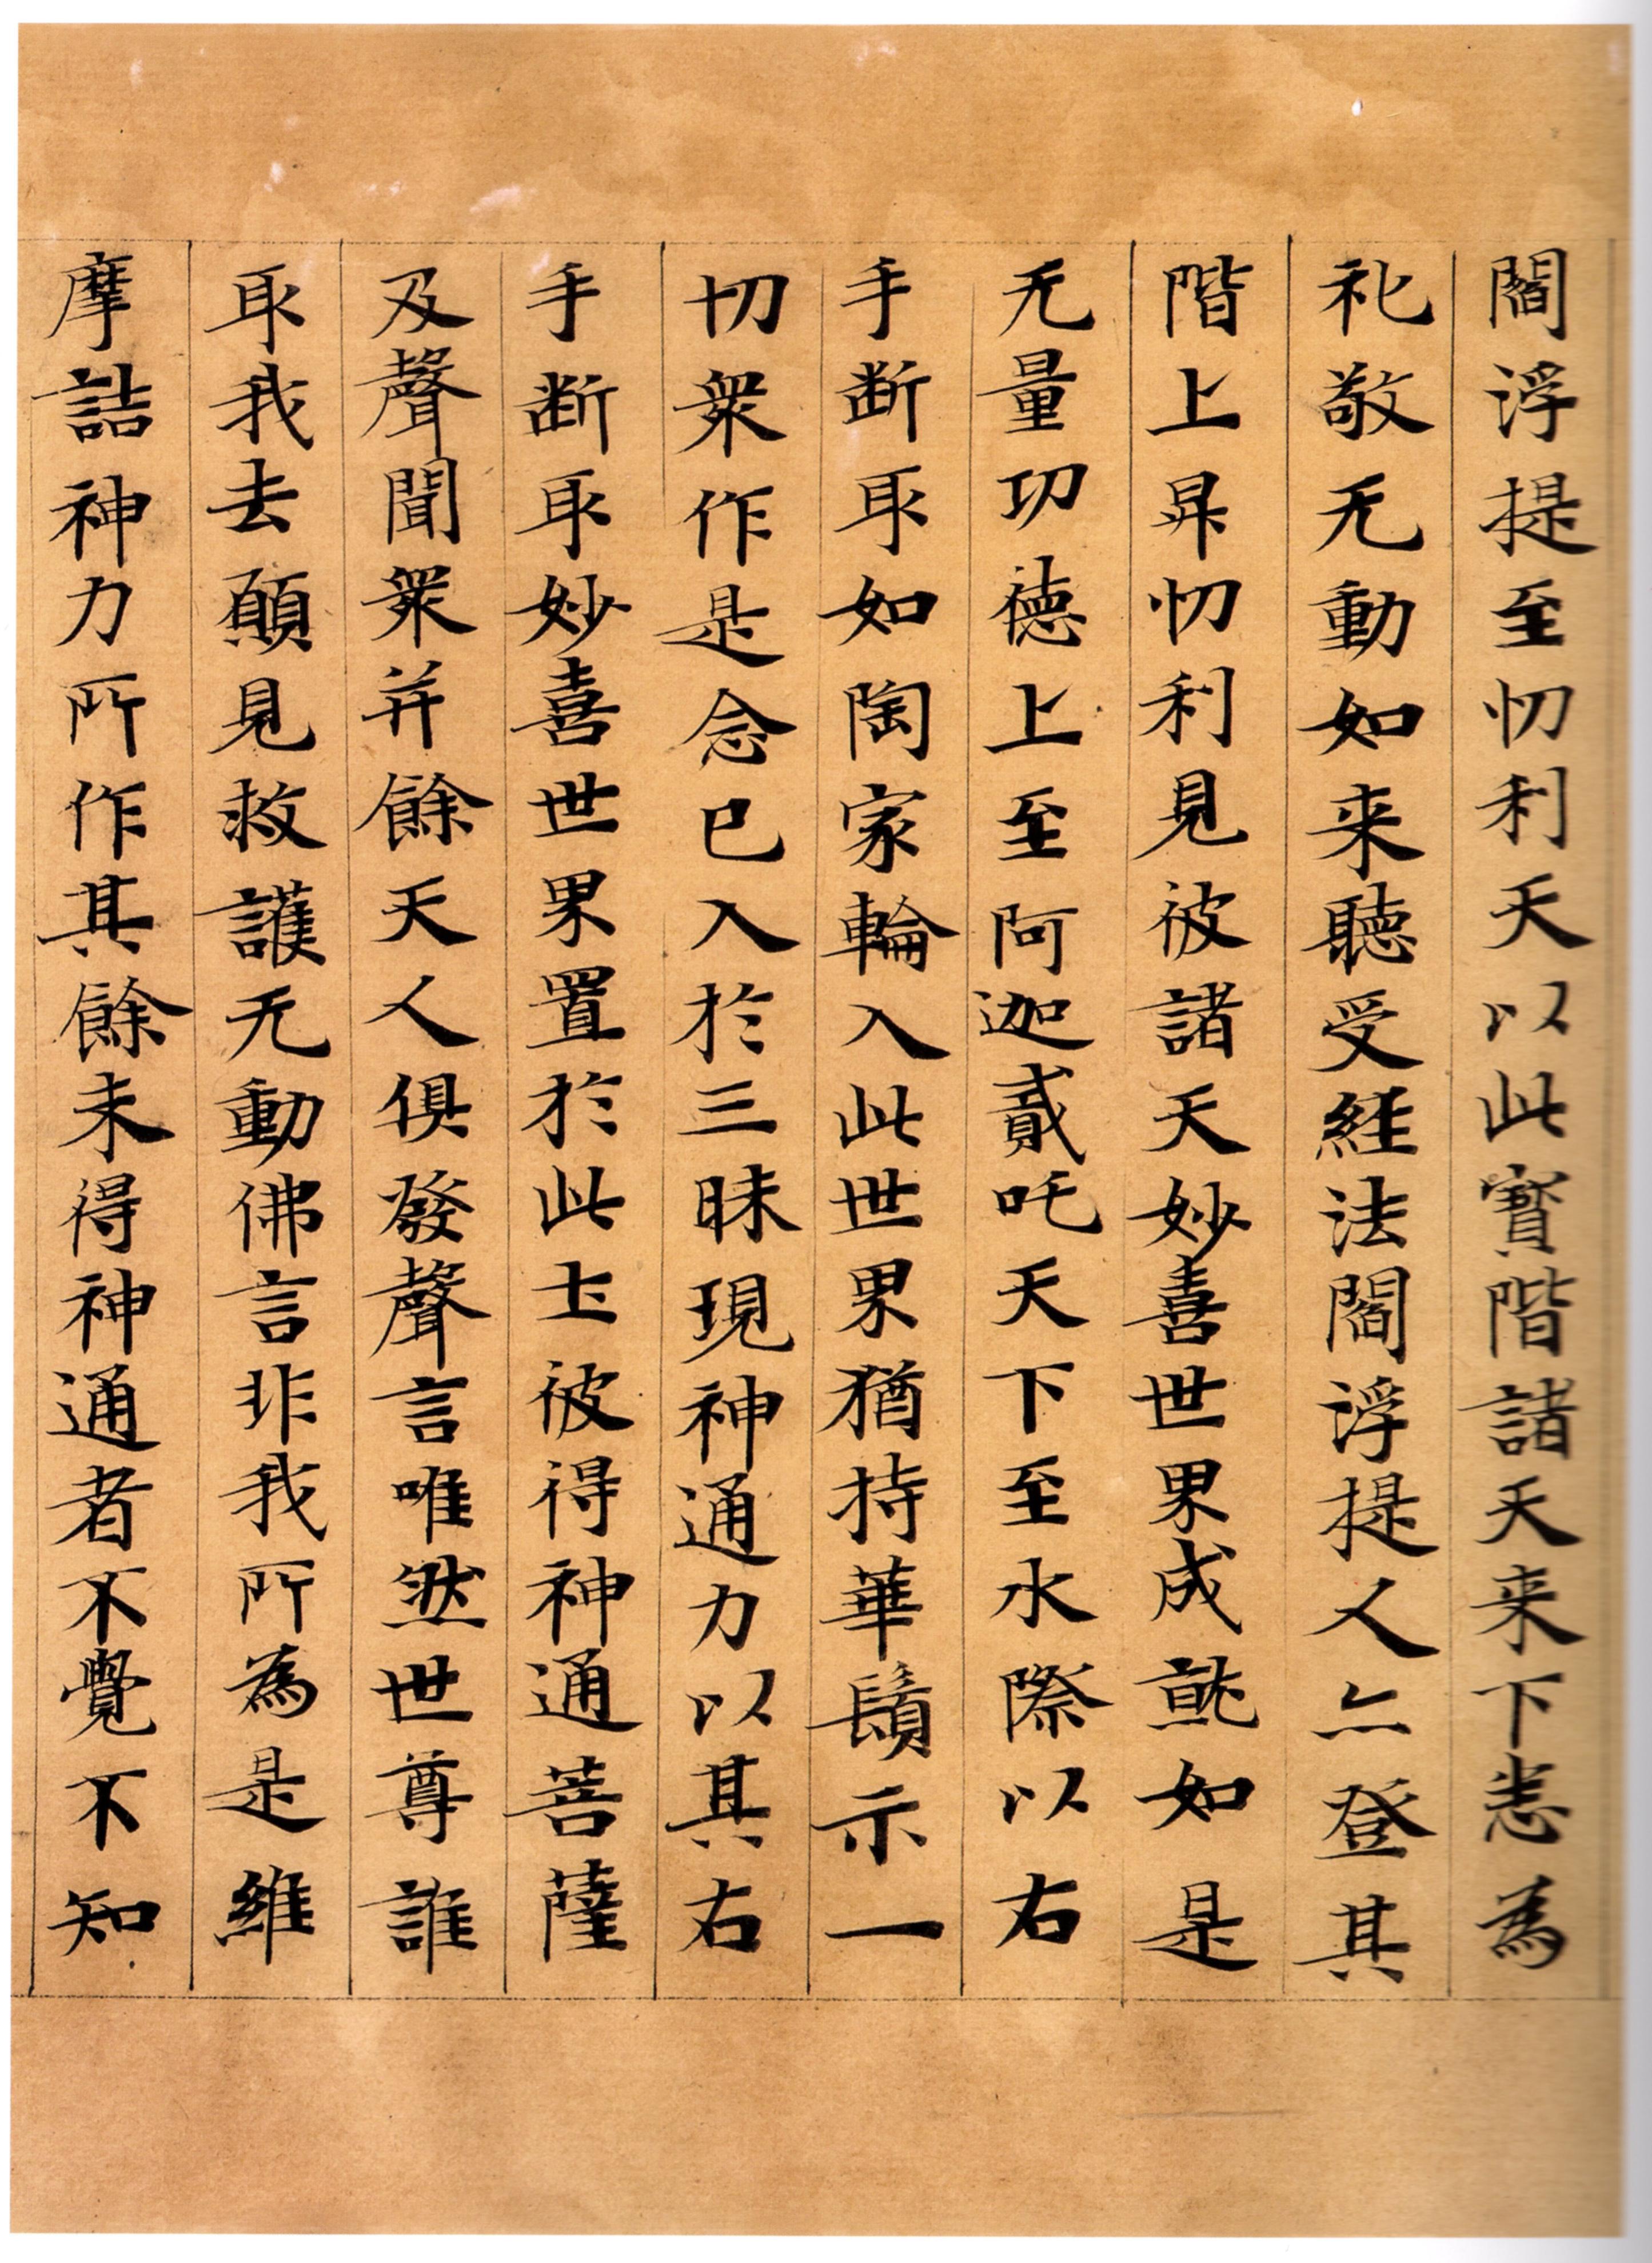 閻浮提至忉利天以此寳階諸天来下悉為
礼敬无動如来聽受経法閻浮提人亦登其
階上昇忉利見彼諸天妙喜世界成就如是
无量功德上至阿迦貳吒天下至水際以右
手断取如陶家輪入此世界猶持華鬘示一
切衆作是念已入於三昧現神通力以其右
手断取妙喜世界置於此土彼得神通菩薩
及聲聞衆并餘天人俱發聲言唯然世尊誰
取我去願見救護无動佛言非我所為是維
摩詰神力所作其餘未得神通者不覺不知